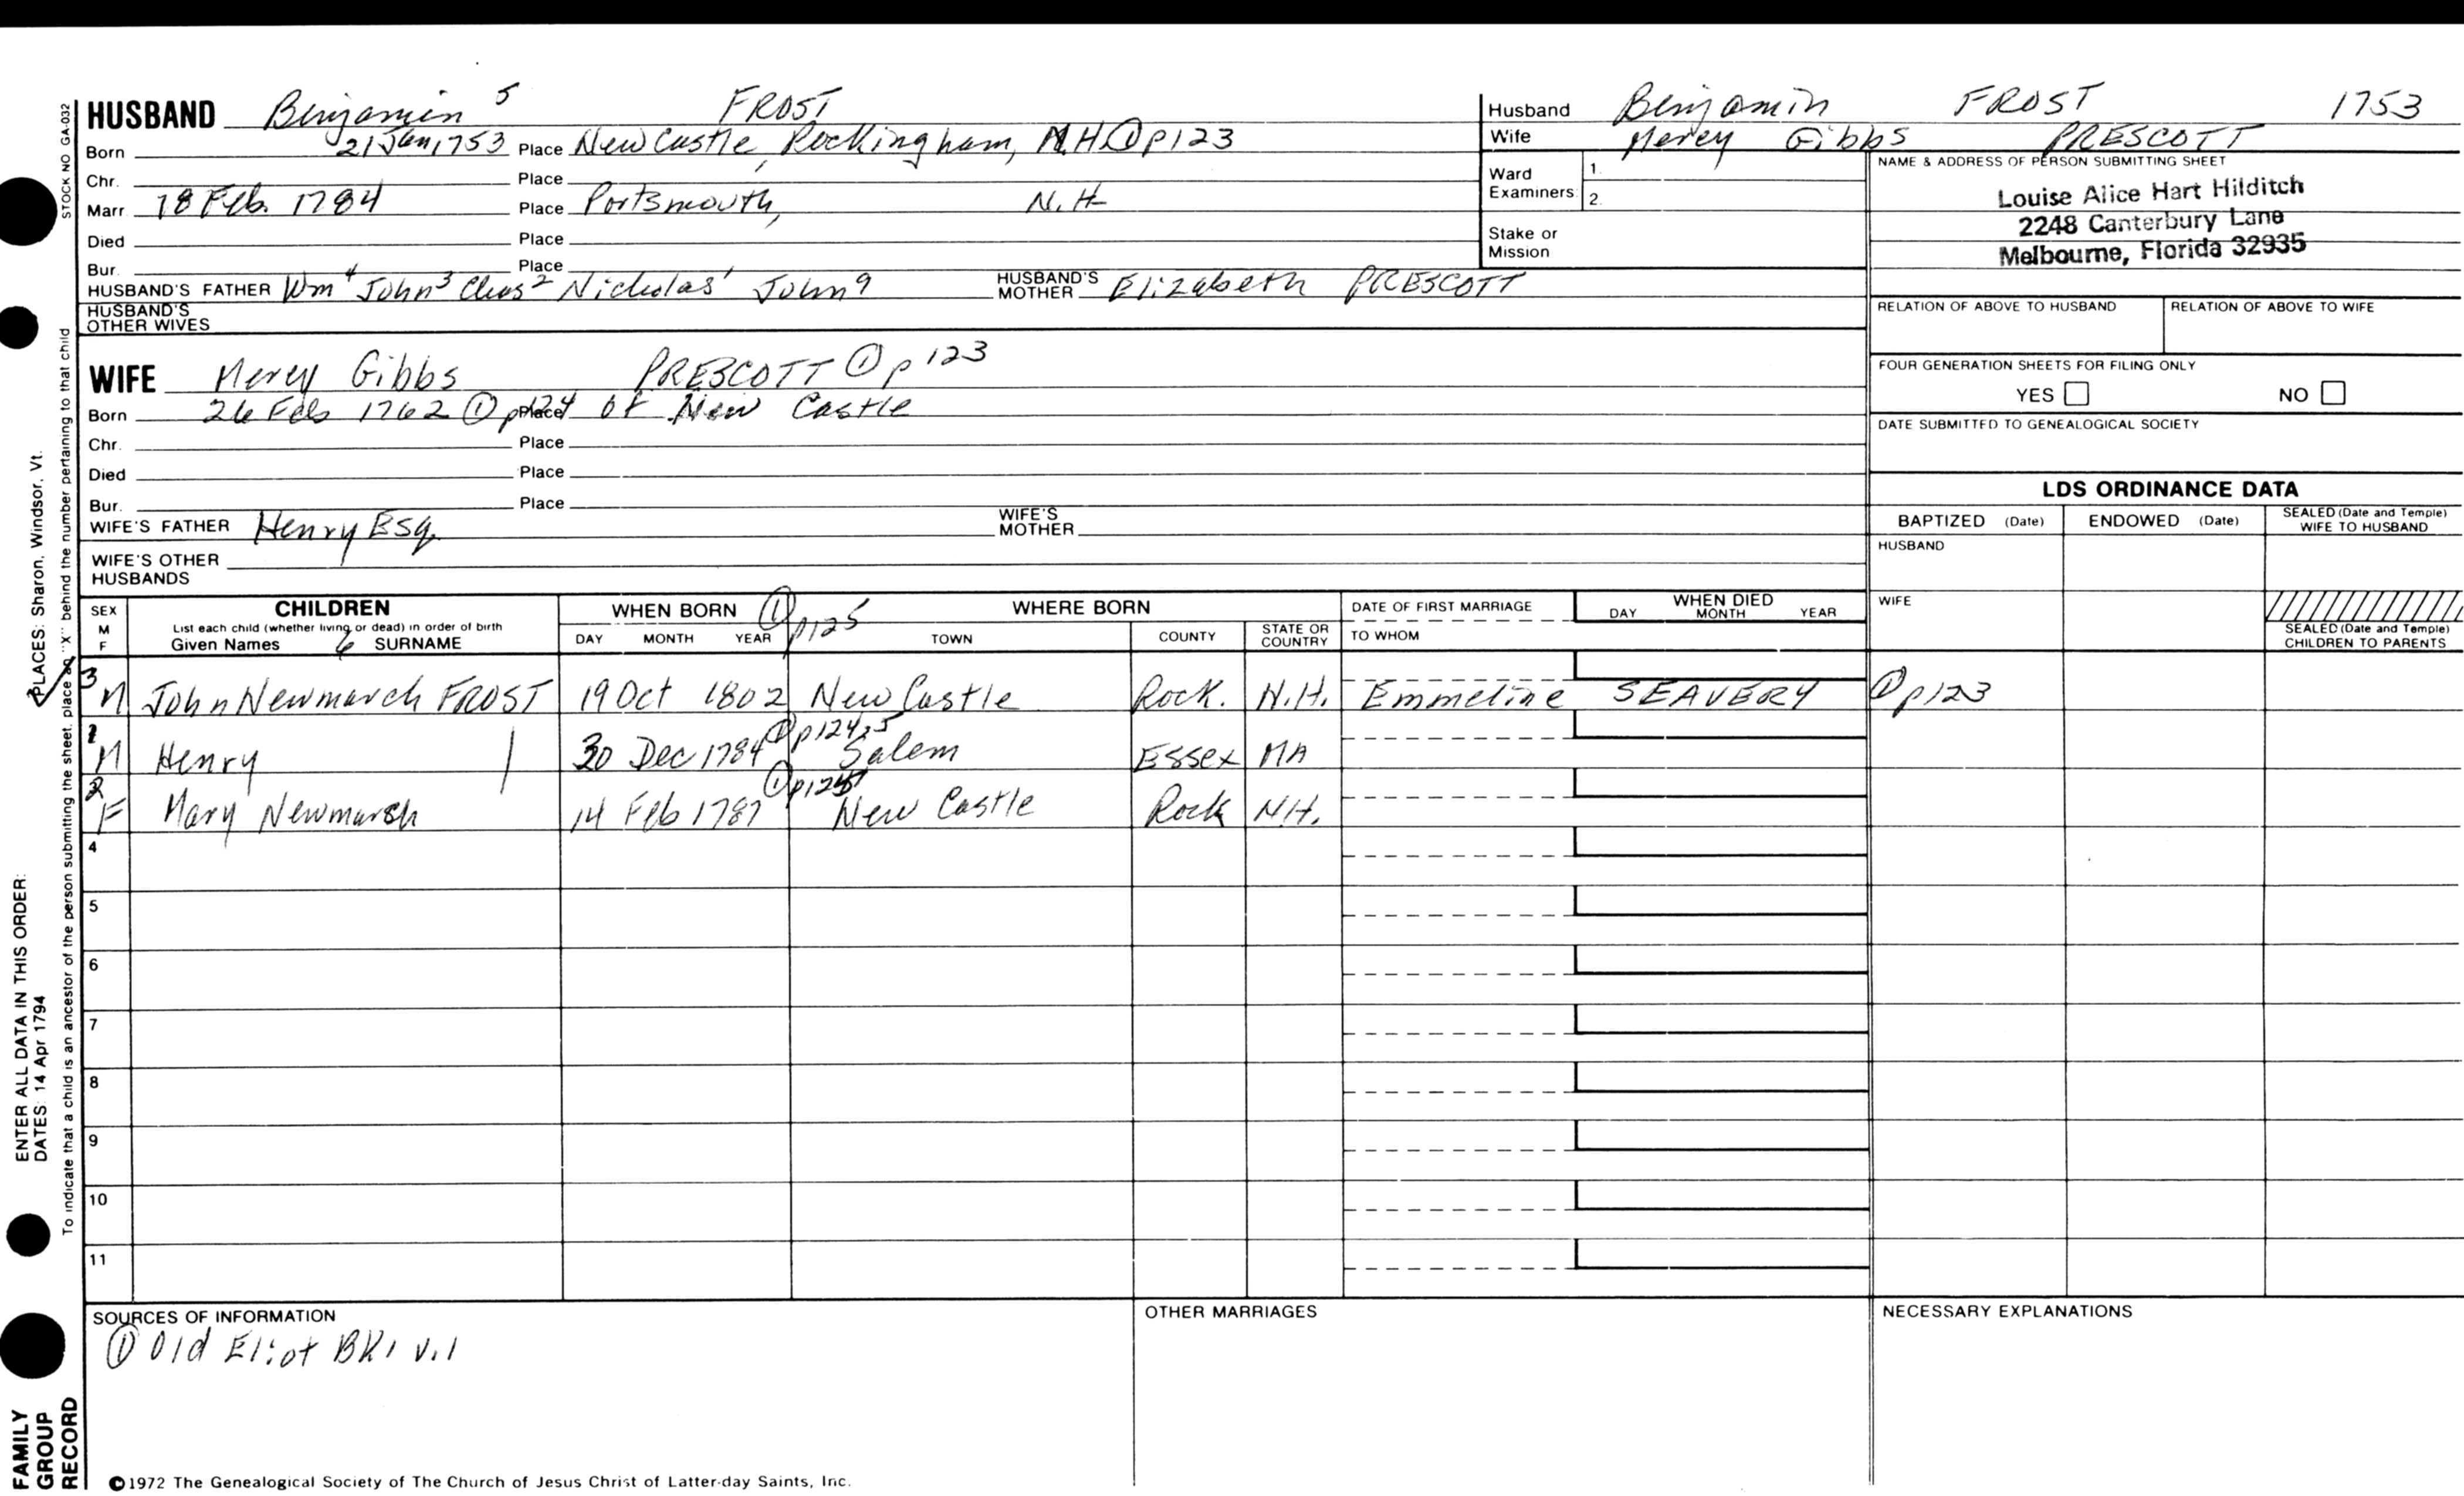 HUSBAND Benjamin 5 FROST
Born 21 Jan 1753 Place New Castle, Rockingham, N.H. ① p123
Chr. Place
Marr 18 Feb. 1784 Place Portsmouth, N.H.
Died Place
Bur. Place
HUSBAND'S FATHER Wm 4 John 3 Chas 2 Nicholas 1 John 9 HUSBAND'S MOTHER Elizabeth PRESCOTT
HUSBAND'S OTHER WIVES
Husband Benjamin FROST 1753
Wife Mercy Gibbs PRESCOTT
Ward Examiners: 1. 2.
Stake or Mission
NAME & ADDRESS OF PERSON SUBMITTING SHEET
Louise Alice Hart Hilditch
2248 Canterbury Lane
Melbourne, Florida 32935
RELATION OF ABOVE TO HUSBAND RELATION OF ABOVE TO WIFE
FOUR GENERATION SHEETS FOR FILING ONLY
YES NO
DATE SUBMITTED TO GENEALOGICAL SOCIETY
WIFE Mercy Gibbs PRESCOTT ① p123
Born 26 Feb 1762 ① p124 Place of New Castle
Chr. Place
Died Place
Bur. Place
WIFE'S FATHER Henry Esq. WIFE'S MOTHER
WIFE'S OTHER HUSBANDS
LDS ORDINANCE DATA
BAPTIZED (Date) ENDOWED (Date) SEALED (Date and Temple) WIFE TO HUSBAND
HUSBAND
WIFE
SEALED (Date and Temple) CHILDREN TO PARENTS
SEX M F
CHILDREN
List each child (whether living or dead) in order of birth
Given Names 6 SURNAME
WHEN BORN ① p125
DAY MONTH YEAR
WHERE BORN
TOWN COUNTY STATE OR COUNTRY
DATE OF FIRST MARRIAGE
TO WHOM
WHEN DIED
DAY MONTH YEAR
3 M John Newmarch FROST 19 Oct 1802 New Castle Rock. N.H. Emmeline SEAVERY ① p123
1 M Henry 30 Dec 1784 ① p124,5 Salem Essex MA
2 F Mary Newmarsh 14 Feb 1787 ① p125 New Castle Rock N.H.
4
5
6
7
8
9
10
11
SOURCES OF INFORMATION
① Old Eliot BK1 v.1
OTHER MARRIAGES
NECESSARY EXPLANATIONS
©1972 The Genealogical Society of The Church of Jesus Christ of Latter-day Saints, Inc.
STOCK NO GA-032
To indicate that a child is an ancestor of the person submitting the sheet, place an "X" behind the number pertaining to that child
ENTER ALL DATA IN THIS ORDER:
DATES: 14 Apr 1794 PLACES: Sharon, Windsor, Vt.
FAMILY GROUP RECORD